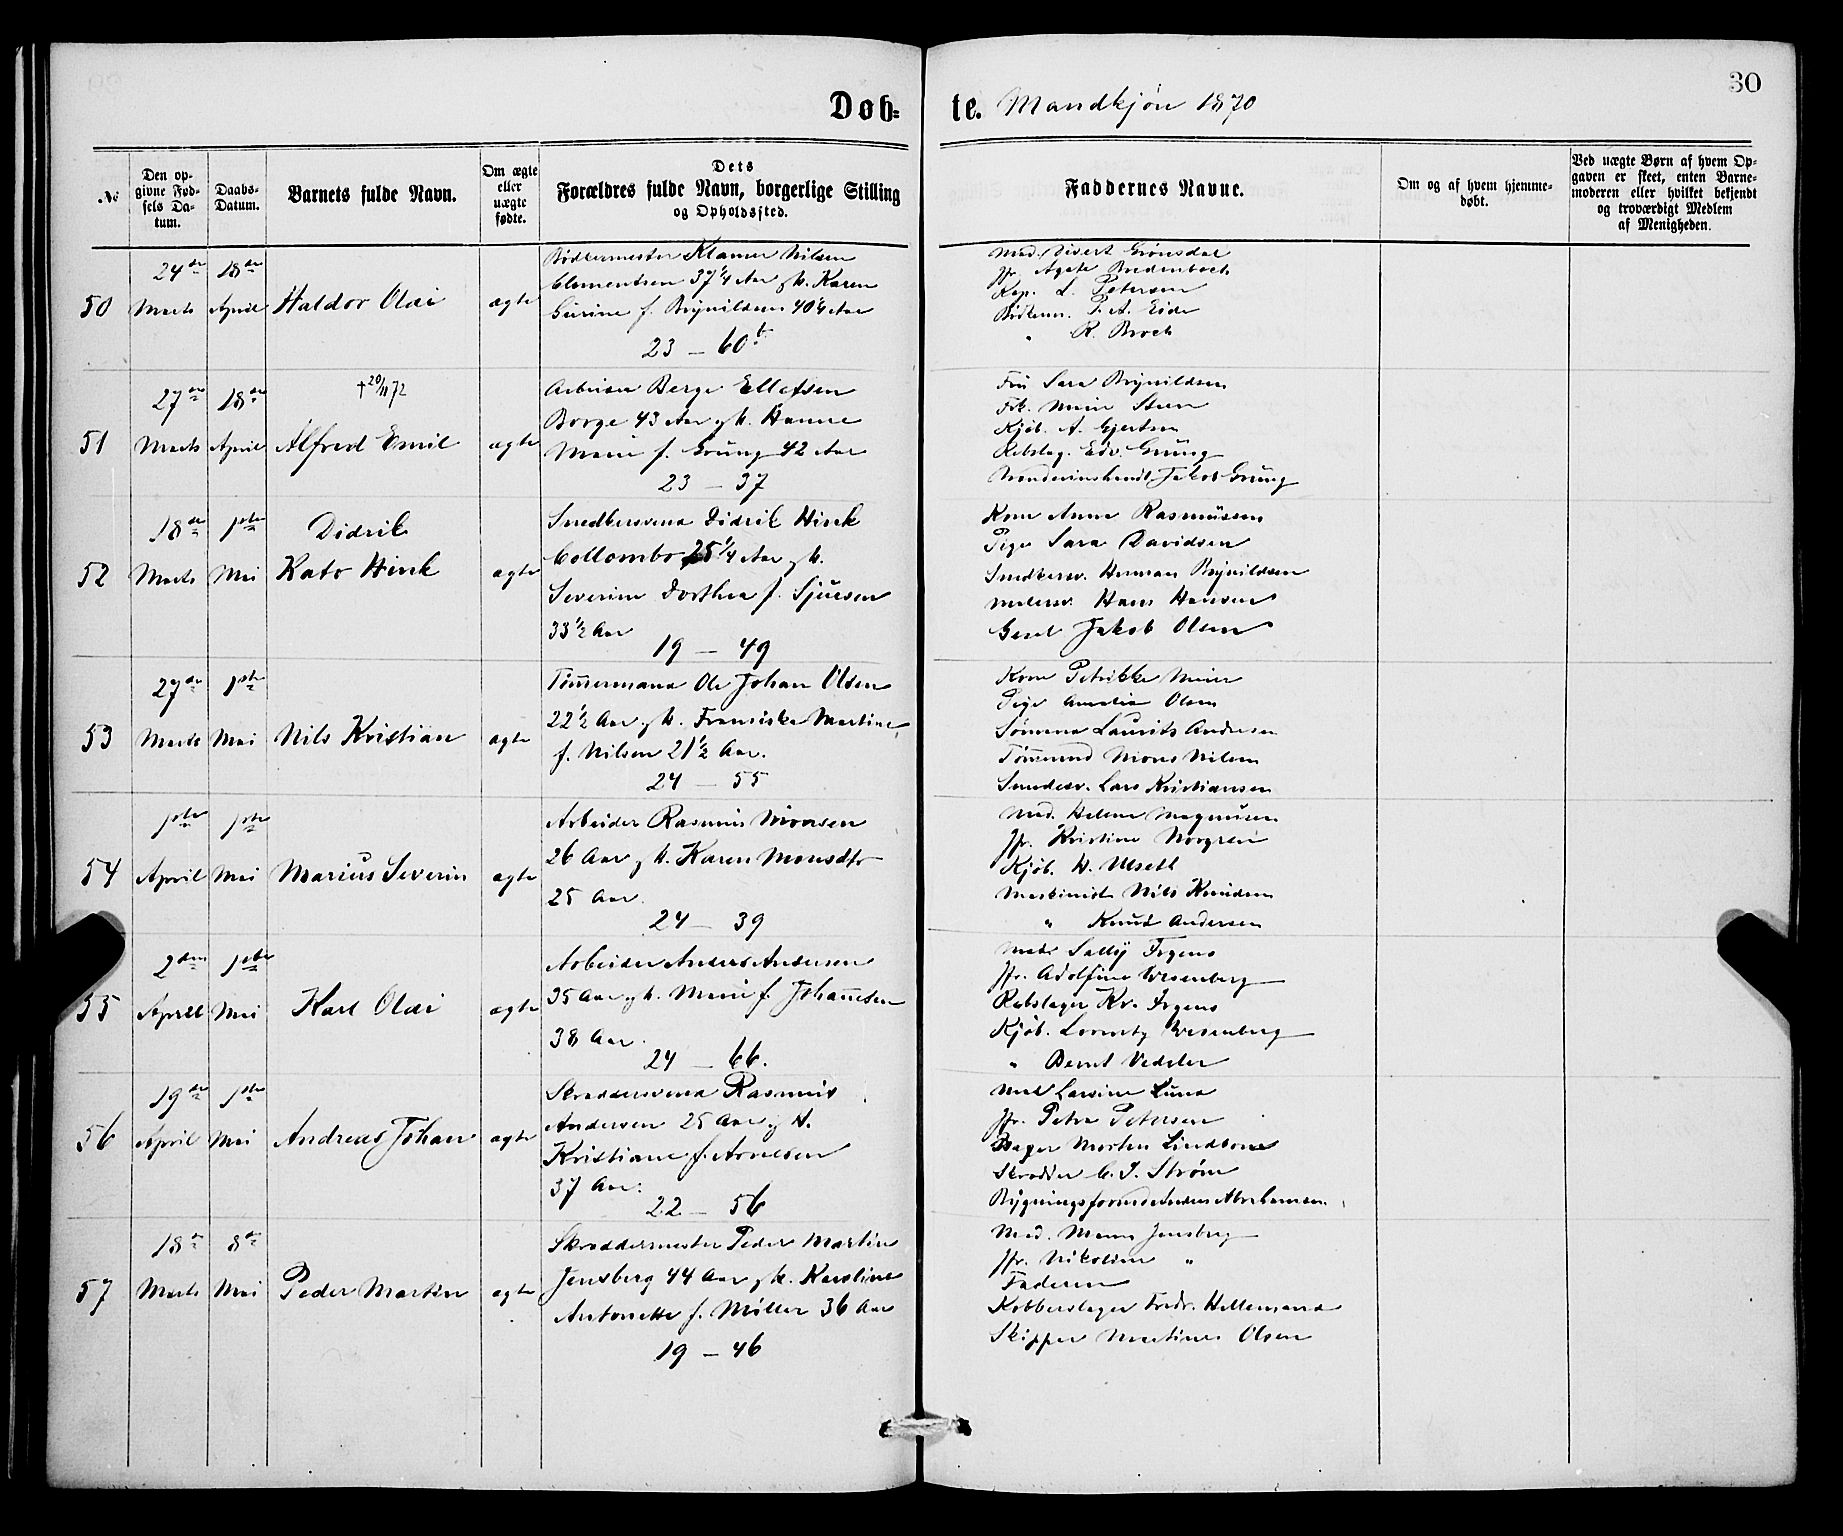 30
Døb- te. Mandkjøn 1870
№
Den op-
givne Fød-
sels Da-
tum.
Daabs-
Datum.
Barnets fulde Navn.
Om ægte
eller
uægte
fødte.
Dets
Forældres fulde Navn, borgerlige Stilling
og Opholdssted.
Faddernes Navne.
Om og af hvem hjemme-
døbt.
Ved uægte Børn af hvem Op-
gaven er skeet, enten Barne-
moderen eller hvilket bekjendt
og troværdigt Medlem
af Menigheden.
50
24de
Marts
18de
April
Haldor Olai
ægte
Bødkermester Klamer Nilsen
Clementsen 37 1/4 Aar g h. Karen
Gurine f. Brynildsen 40 1/4 Aar
23 – 60 b
Mad. Sivert Grønsdal
Jfr. Agate Bredenbech
Kap. L. Petersen
Bødkerm. P. A. Eide
" R. Broch
51
27de
Marts
18de
April
†20/11 72
Alfred Emil
ægte
Arbeider Berge Ellefsen
Borge 43 Aar g h. Hanne
Marie f. Grung 42 Aar
23 – 37
Fru Sara Brynildsen
Frk. Marie Steen
Kjøb. A. Gjertsen
Rebslag. Edv. Grung
Jakob Grung
52
18de
Marts
1ste
Mai
Didrik
Kato Hink
ægte
Smedkersvend Didrik Hink
Collombo 25 1/4 Aar g h.
Severine Dorthea f. Sjursen
33 1/2 Aar
19 – 49
Kone Anna Rasmussen
Pige Sara Davidsen
Snedkersv. Herman Brynildsen
Malersv. Hans Hansen
Gesel Jakob Olsen
53
27de
Marts
1ste
Mai
Nils Kristian
ægte
Tømmermand Ole Johan Olsen
22 1/2 Aar g h. Fransiska Martine
f. Nilsen 21 1/2 Aar.
24 – 55
Kone Petrikke Meier
Pige Amalia Olsen
Sømand Laurits Andresen
Tømmermd Mons Nilsen
Smedesv. Lars Kristiansen
54
1ste
April
1ste
Mai
Marius Severin
ægte
Arbeider Rasmus Monsen
26 Aar g h. Karen Monsdtr
25 Aar.
24 – 39
Mad. Helene Magnusen
Jfr. Kristine Norgren
Kjøb. H. Ulseth
Maskinist Nils Knudsen
" Knut Andersen
55
2den
April
1ste
Mai
Karl Olai
ægte
Arbeider Anders Andersen
35 Aar g h. Marie f. Johannesen
38 Aar.
24 – 66.
Mad. Sally Irgens
Jfr. Adolfine Wesenberg
Rebslager Kr. Irgens
Kjøb. Lorentz Wesenberg
" Bernt Vedeler
56
19de
April
1ste
Mai
Andreas Johan
ægte
Skræddersvend Rasmus
Andersen 25 Aar g h.
Kristiane f. Arnesen
37 Aar.
22 – 56
Mad Larsine Lund
Jfr. Petra Petersen
Bager Morten Lindtone
Skrædder C. J. Strøm
Bygningsformd Anders Abrahamsen
57
18de
Marts
8de
Mai
Peder Martin
ægte
Skræddermester Peder Martin
Jensberg 44 Aar g h. Karoline
Antonette f. Møller 36 Aar
19 – 46
Mad. Maren Jensberg
Jfr. Nikoline "
Faderen
Kobberslager Fredr. Hellemand
Skipper Martinus Olsen